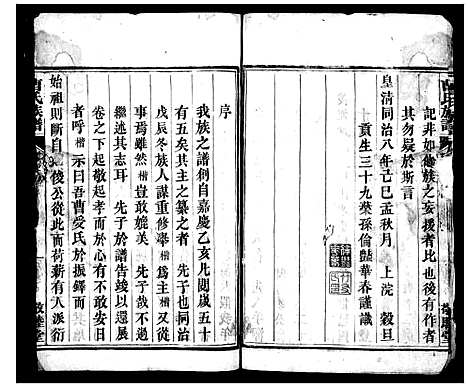 記非如他族之妄援者比也後有作者
其勿疑於斯言
皇清同治八年己巳孟秋月上浣穀旦
貢生三十九榮孫倫藍華春謹識
序
我族之譜創自嘉慶乙亥凡閱歲五十
有五矣其主之纂之者先子也同治
戊辰冬族人謀重修舉楷爲主楷又從
事焉雖然楷豈敢媲美先子哉不過
繼述其志耳先子於譜告竣以還展
卷之下起敬起孝有心存不敢安日
者呼楷示曰吾曹受氏於振鐸而
始祖則斷自俊公從此而荷薪有人派衍
曹氏族譜
敬睦堂